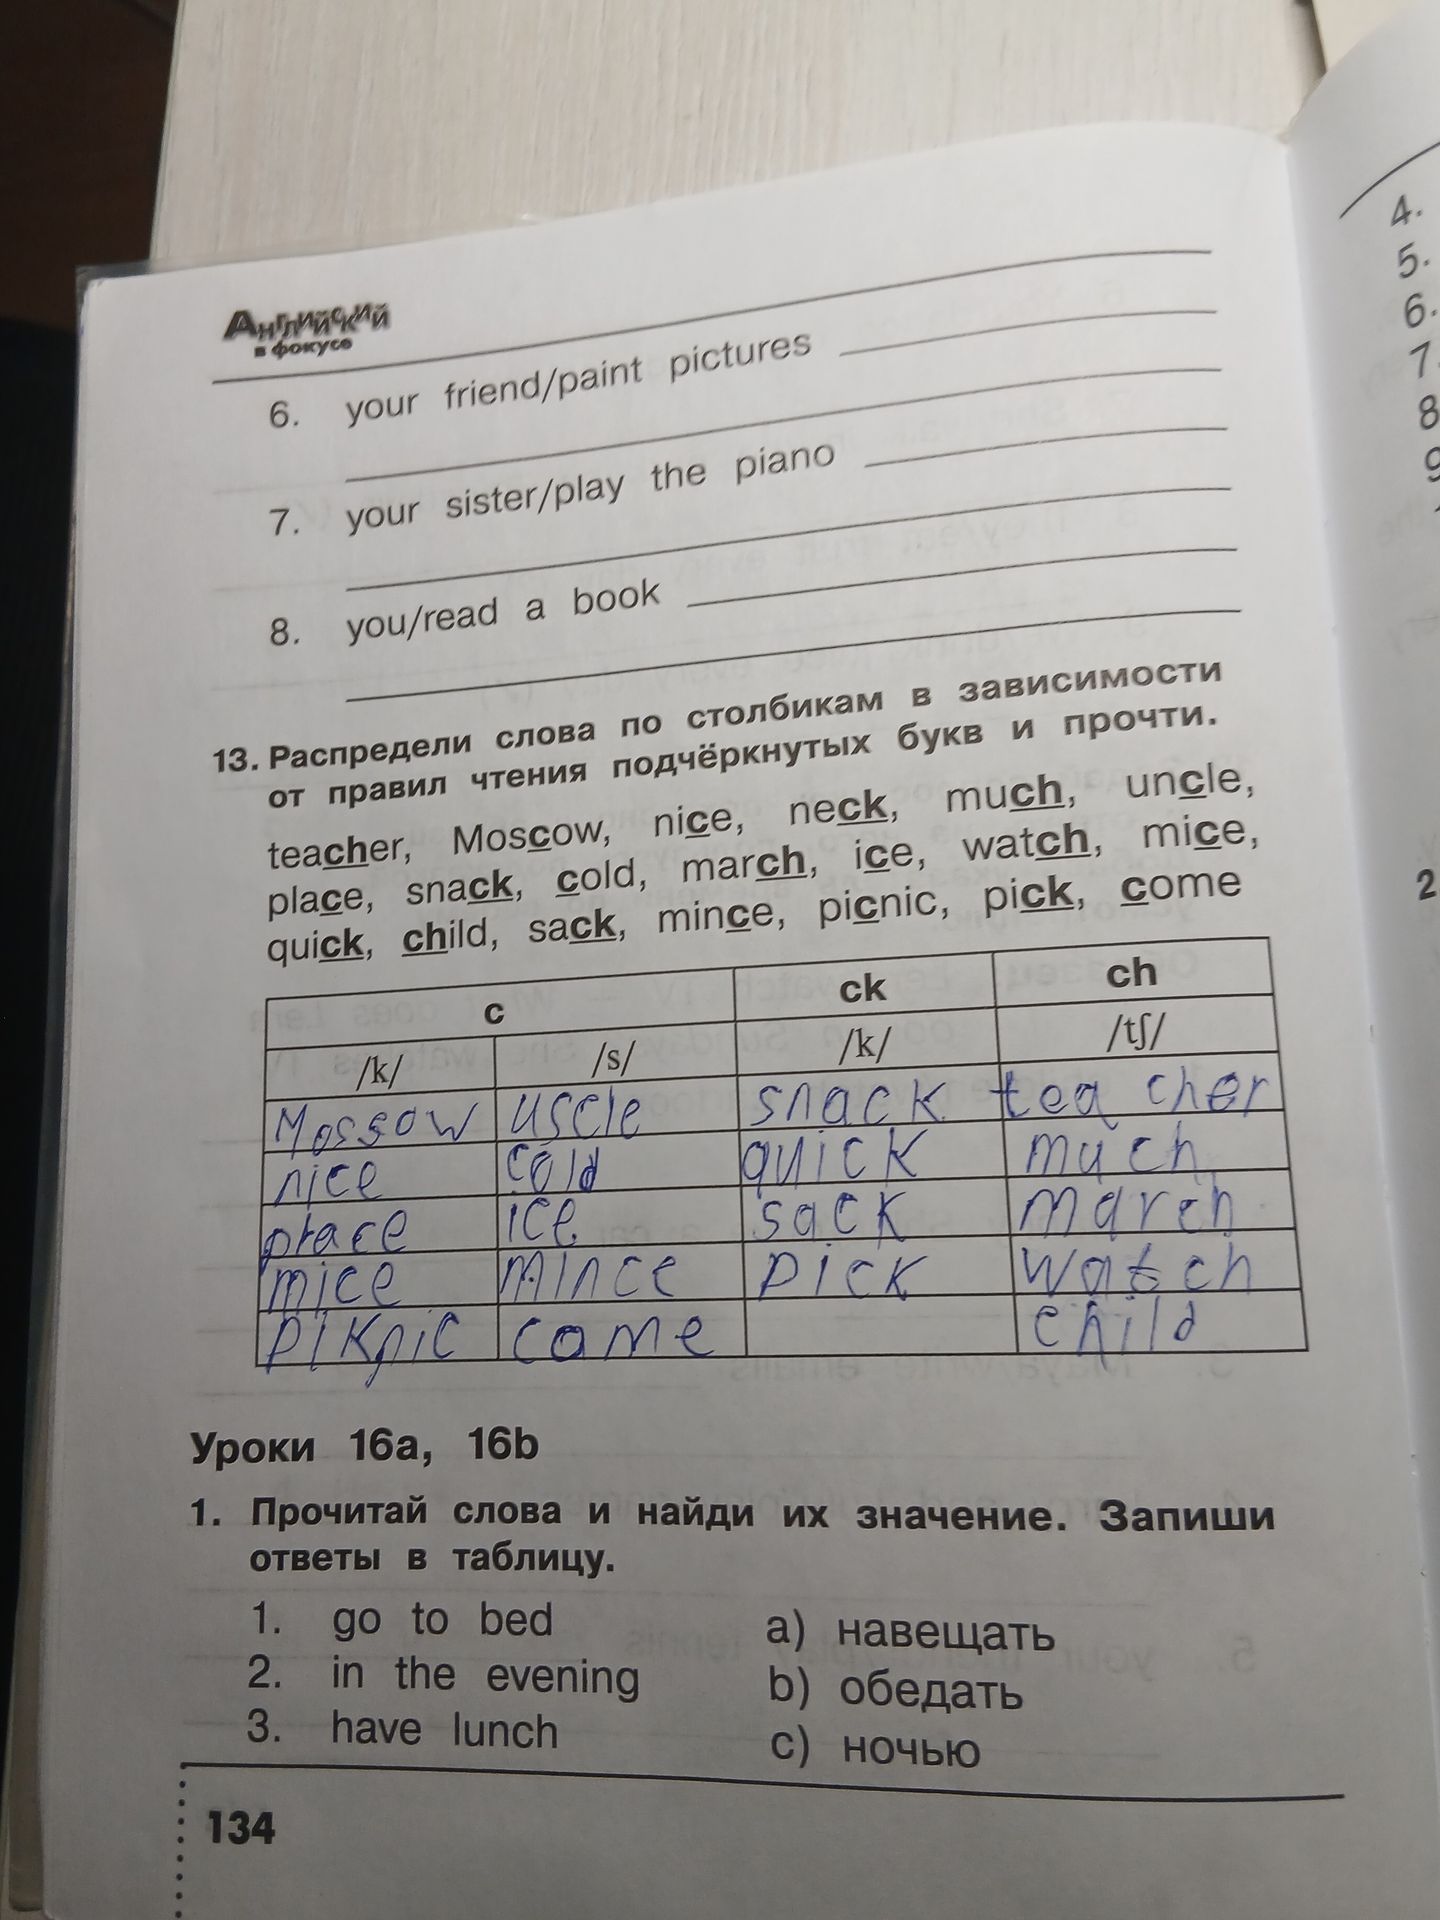 Английский
в фокусе
6. your friend/paint pictures
7. your sister/play the piano
8. you/read a book
13. Распредели слова по столбикам в зависимости
от правил чтения подчёркнутых букв и прочти.
teacher, Moscow, nice, neck, much, uncle,
place, snack, cold, march, ice, watch, mice,
quick, child, sack, mince, picnic, pick, come
c ck ch
/k/ /s/ /k/ /tʃ/
Mossow uscle snack tea cher
nice cold quick much
place ice sack march
mice mince pick watch
pikpic come child
Уроки 16a, 16b
1. Прочитай слова и найди их значение. Запиши
ответы в таблицу.
1. go to bed a) навещать
2. in the evening b) обедать
3. have lunch c) ночью
134
4.
5.
6.
7.
8
9
2